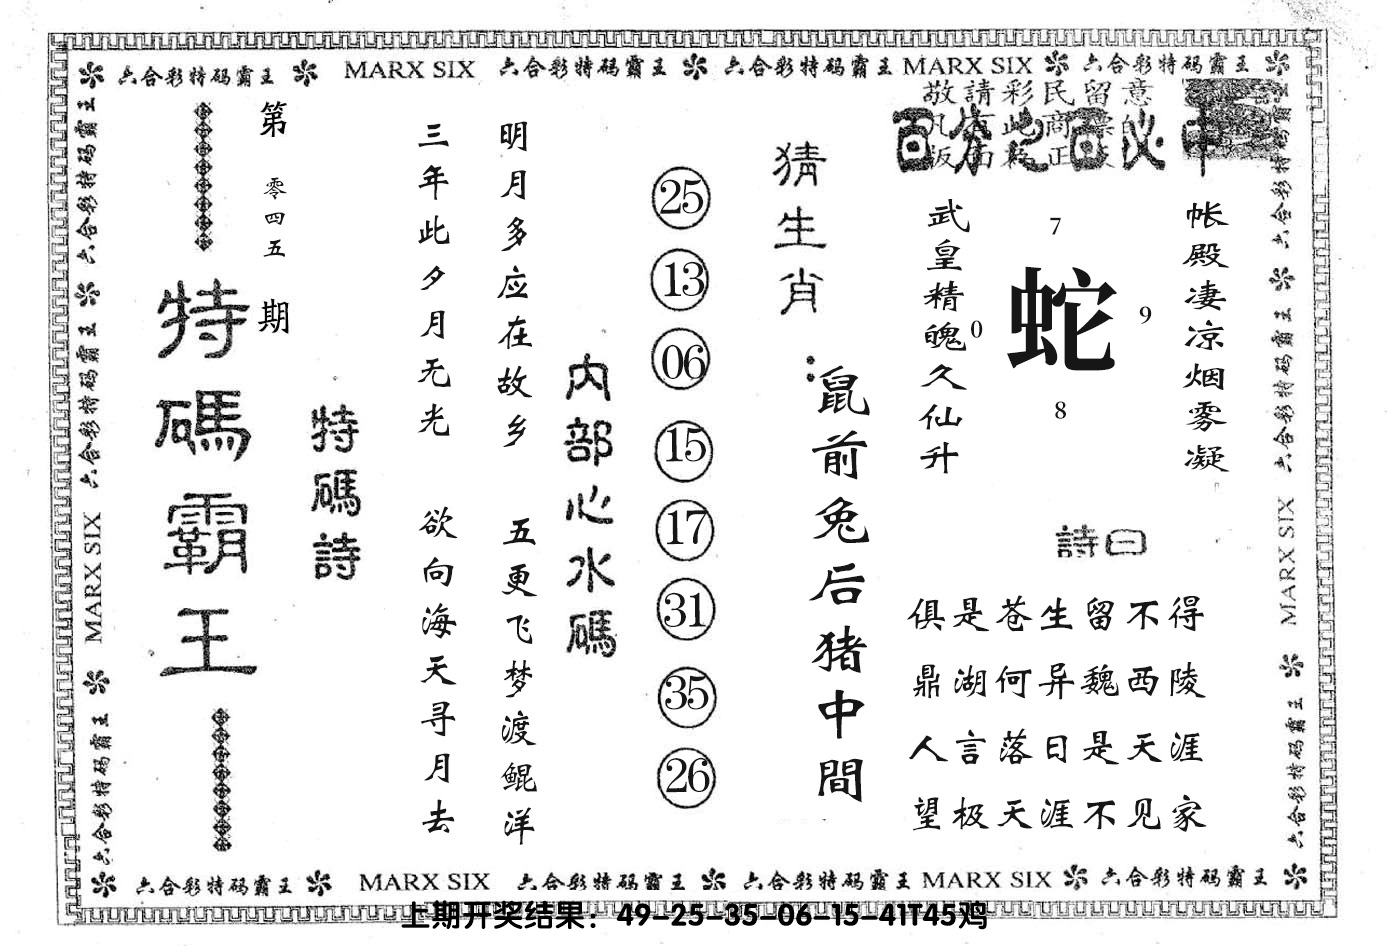 六合彩特码霸王 MARX SIX 六合彩特码霸王 六合彩特码霸王 MARX SIX 六合彩特码霸王
敬請彩民留意
百分之百必中
第零四五期
特碼霸王
特碼詩
三年此夕月无光
明月多应在故乡
欲向海天寻月去
五更飞梦渡鲲洋
内部心水碼
25
13
06
15
17
31
35
26
猜生肖:
鼠前兔后猪中間
武皇精魄久仙升
7
0
蛇
9
8
帐殿凄凉烟雾凝
詩曰
俱是苍生留不得
鼎湖何异魏西陵
人言落日是天涯
望极天涯不见家
六合彩特码霸王 六合彩特码霸王 MARX SIX 六合彩特码霸王
六合彩特码霸王 六合彩特码霸王 MARX SIX 六合彩特码霸王
六合彩特码霸王 MARX SIX 六合彩特码霸王 六合彩特码霸王 MARX SIX 六合彩特码霸王
上期开奖结果：49-25-35-06-15-41T45鸡